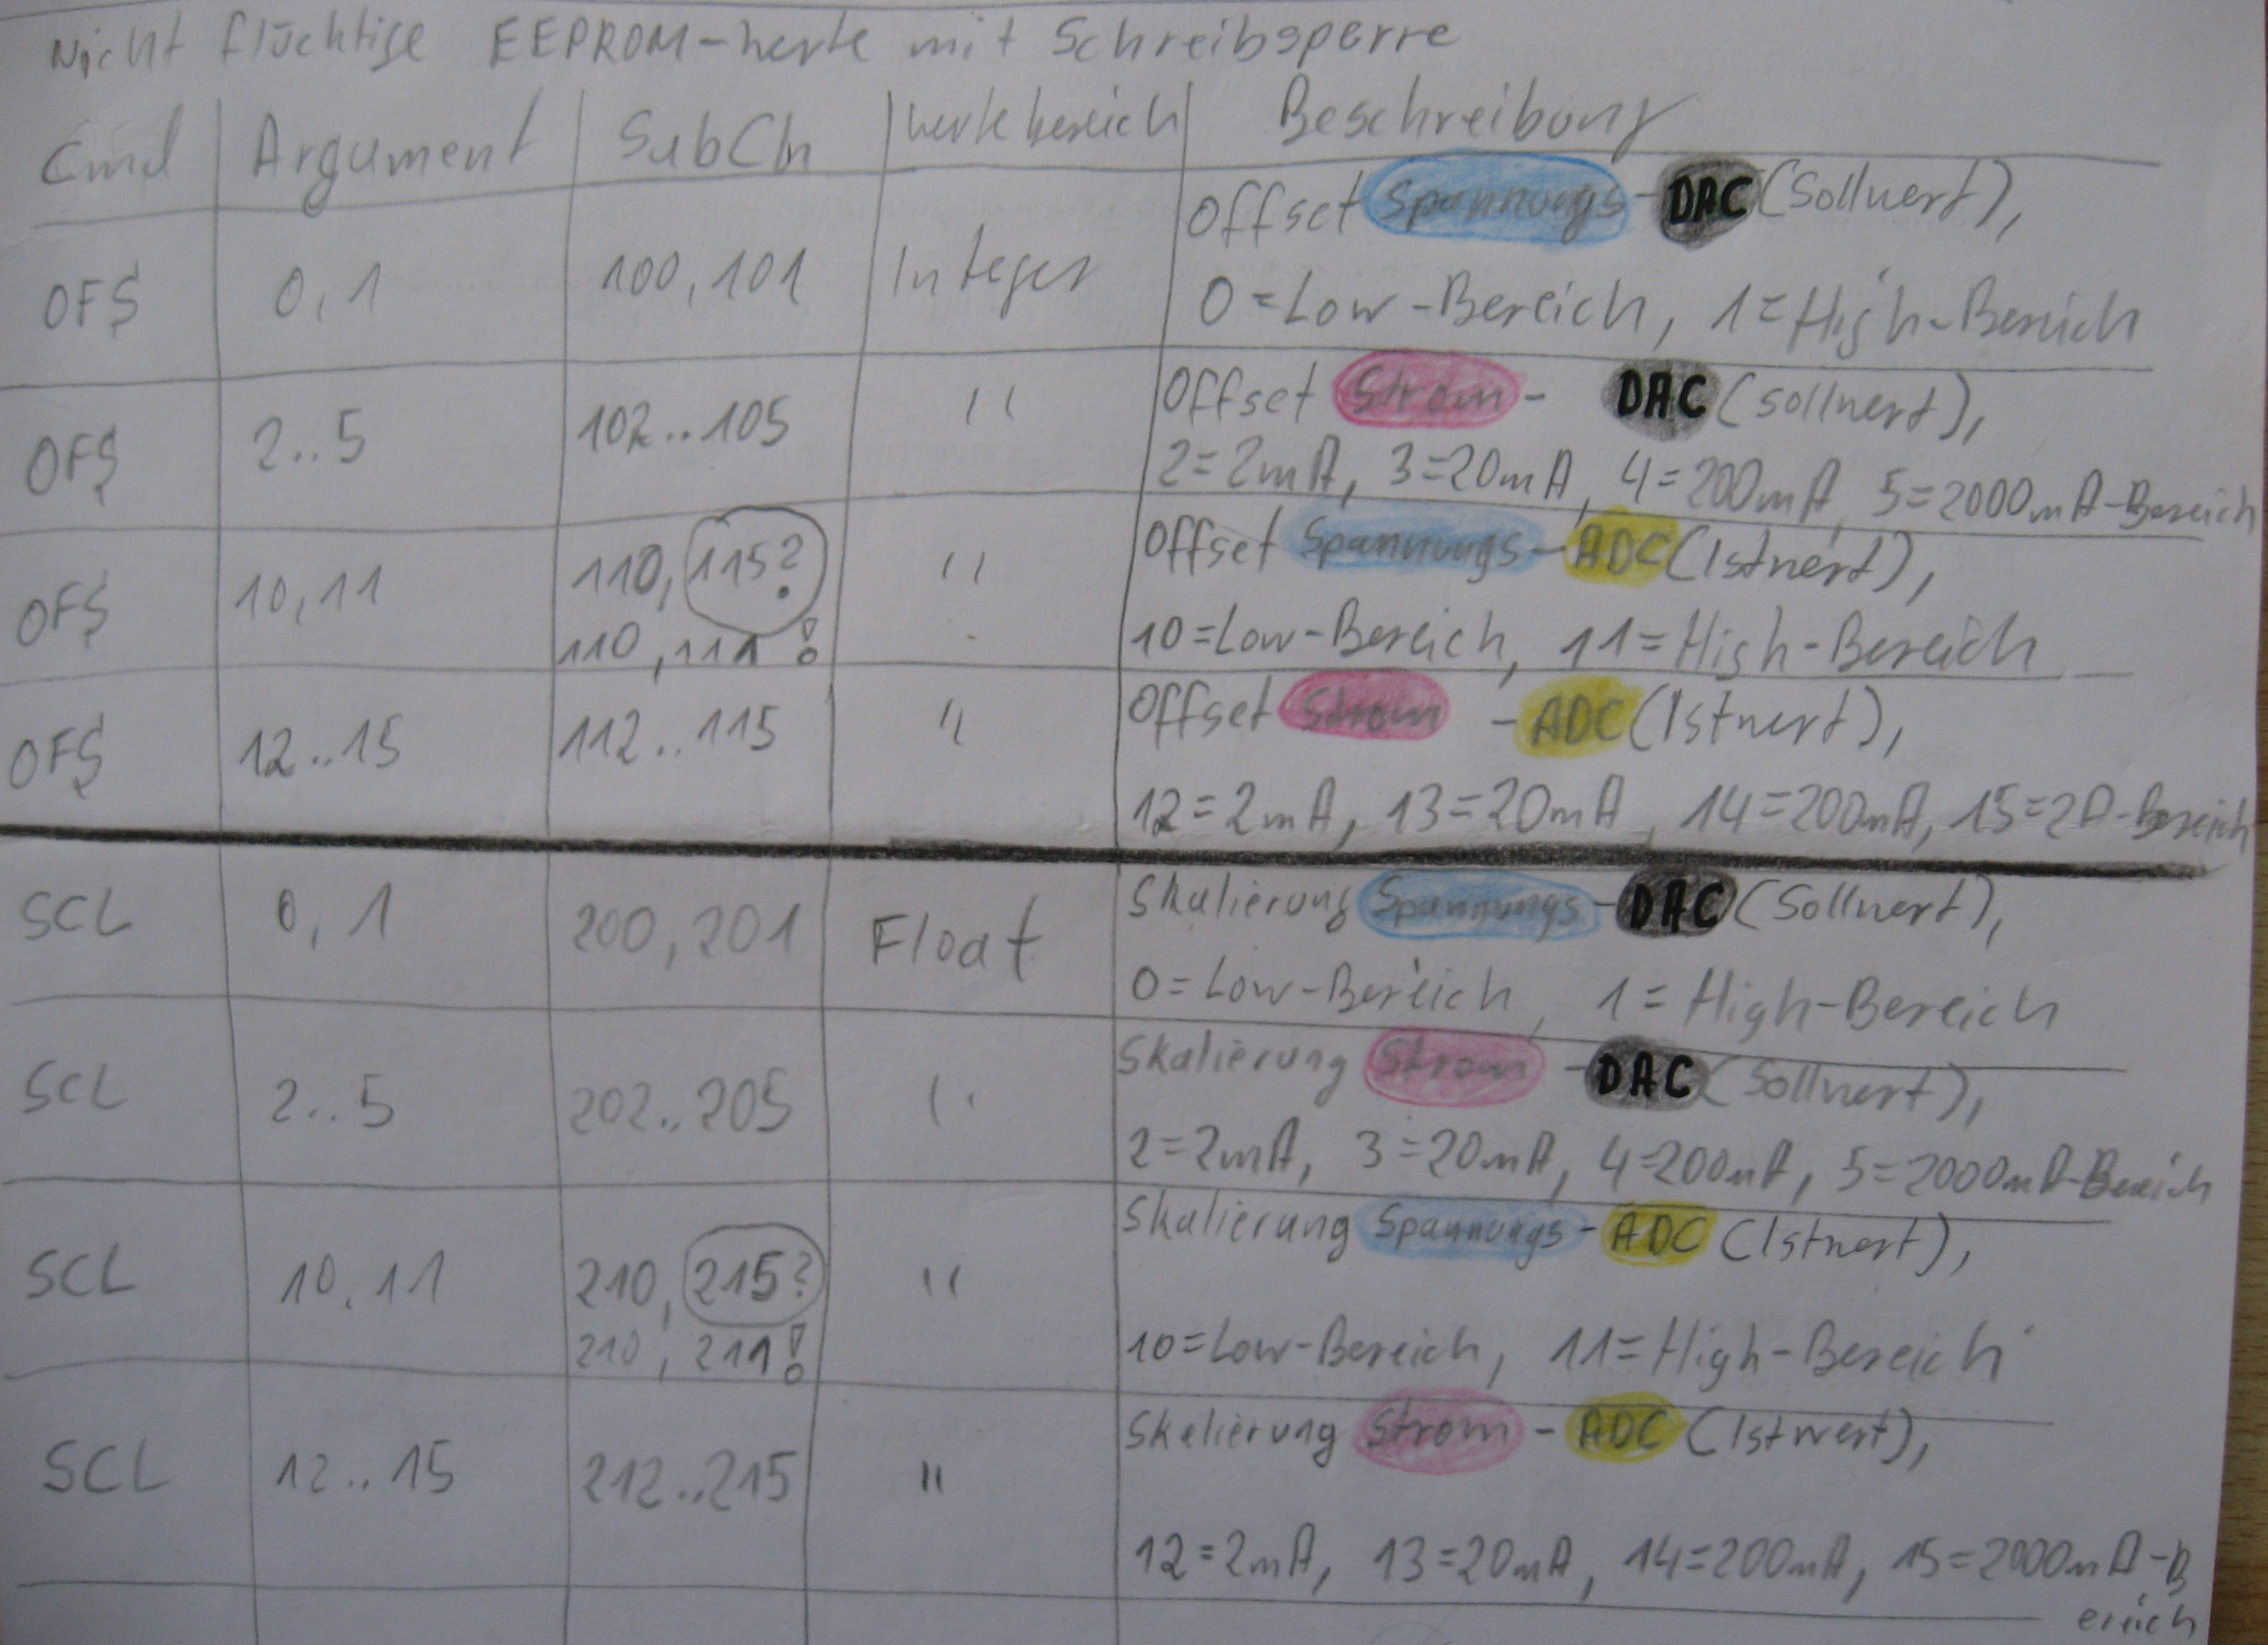 Nicht flüchtige EEPROM-werte mit Schreibsperre
Cmd Argument SubCh Wertebereich Beschreibung
OFS 0,1 100,101 Integer Offset Spannungs-DAC (Sollwert),
0=Low-Bereich, 1=High-Bereich
OFS 2..5 102..105 " Offset Strom- DAC (Sollwert),
2=2mA, 3=20mA, 4=200mA, 5=2000mA-Bereich
OFS 10,11 110, 115? " Offset Spannungs-ADC (Istwert),
110, 111! 10=Low-Bereich, 11=High-Bereich
OFS 12..15 112..115 " Offset Strom -ADC (Istwert),
12=2mA, 13=20mA, 14=200mA, 15=2A-Bereich
SCL 0,1 200,201 Float Skalierung Spannungs-DAC (Sollwert),
0=Low-Bereich, 1=High-Bereich
SCL 2..5 202..205 " Skalierung Strom -DAC (Sollwert),
2=2mA, 3=20mA, 4=200mA, 5=2000mA-Bereich
SCL 10,11 210, 215? " Skalierung Spannungs-ADC (Istwert),
210, 211! 10=Low-Bereich, 11=High-Bereich
SCL 12..15 212..215 " Skalierung Strom-ADC (Istwert),
12=2mA, 13=20mA, 14=200mA, 15=2000mA-B
ereich